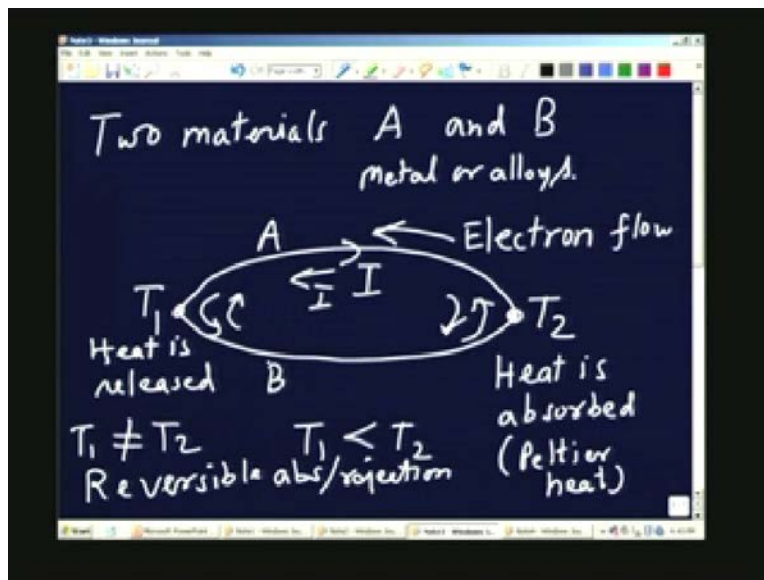 Note3 - Windows Journal
File Edit View Insert Actions Tools Help
Two materials A and B
Metal or alloys.
A
Electron flow
I
I
T1
T2
Heat is
released
B
Heat is
absorbed
(Peltier
heat)
T1 ≠ T2 T1 < T2
Reversible abs/rejection
Start